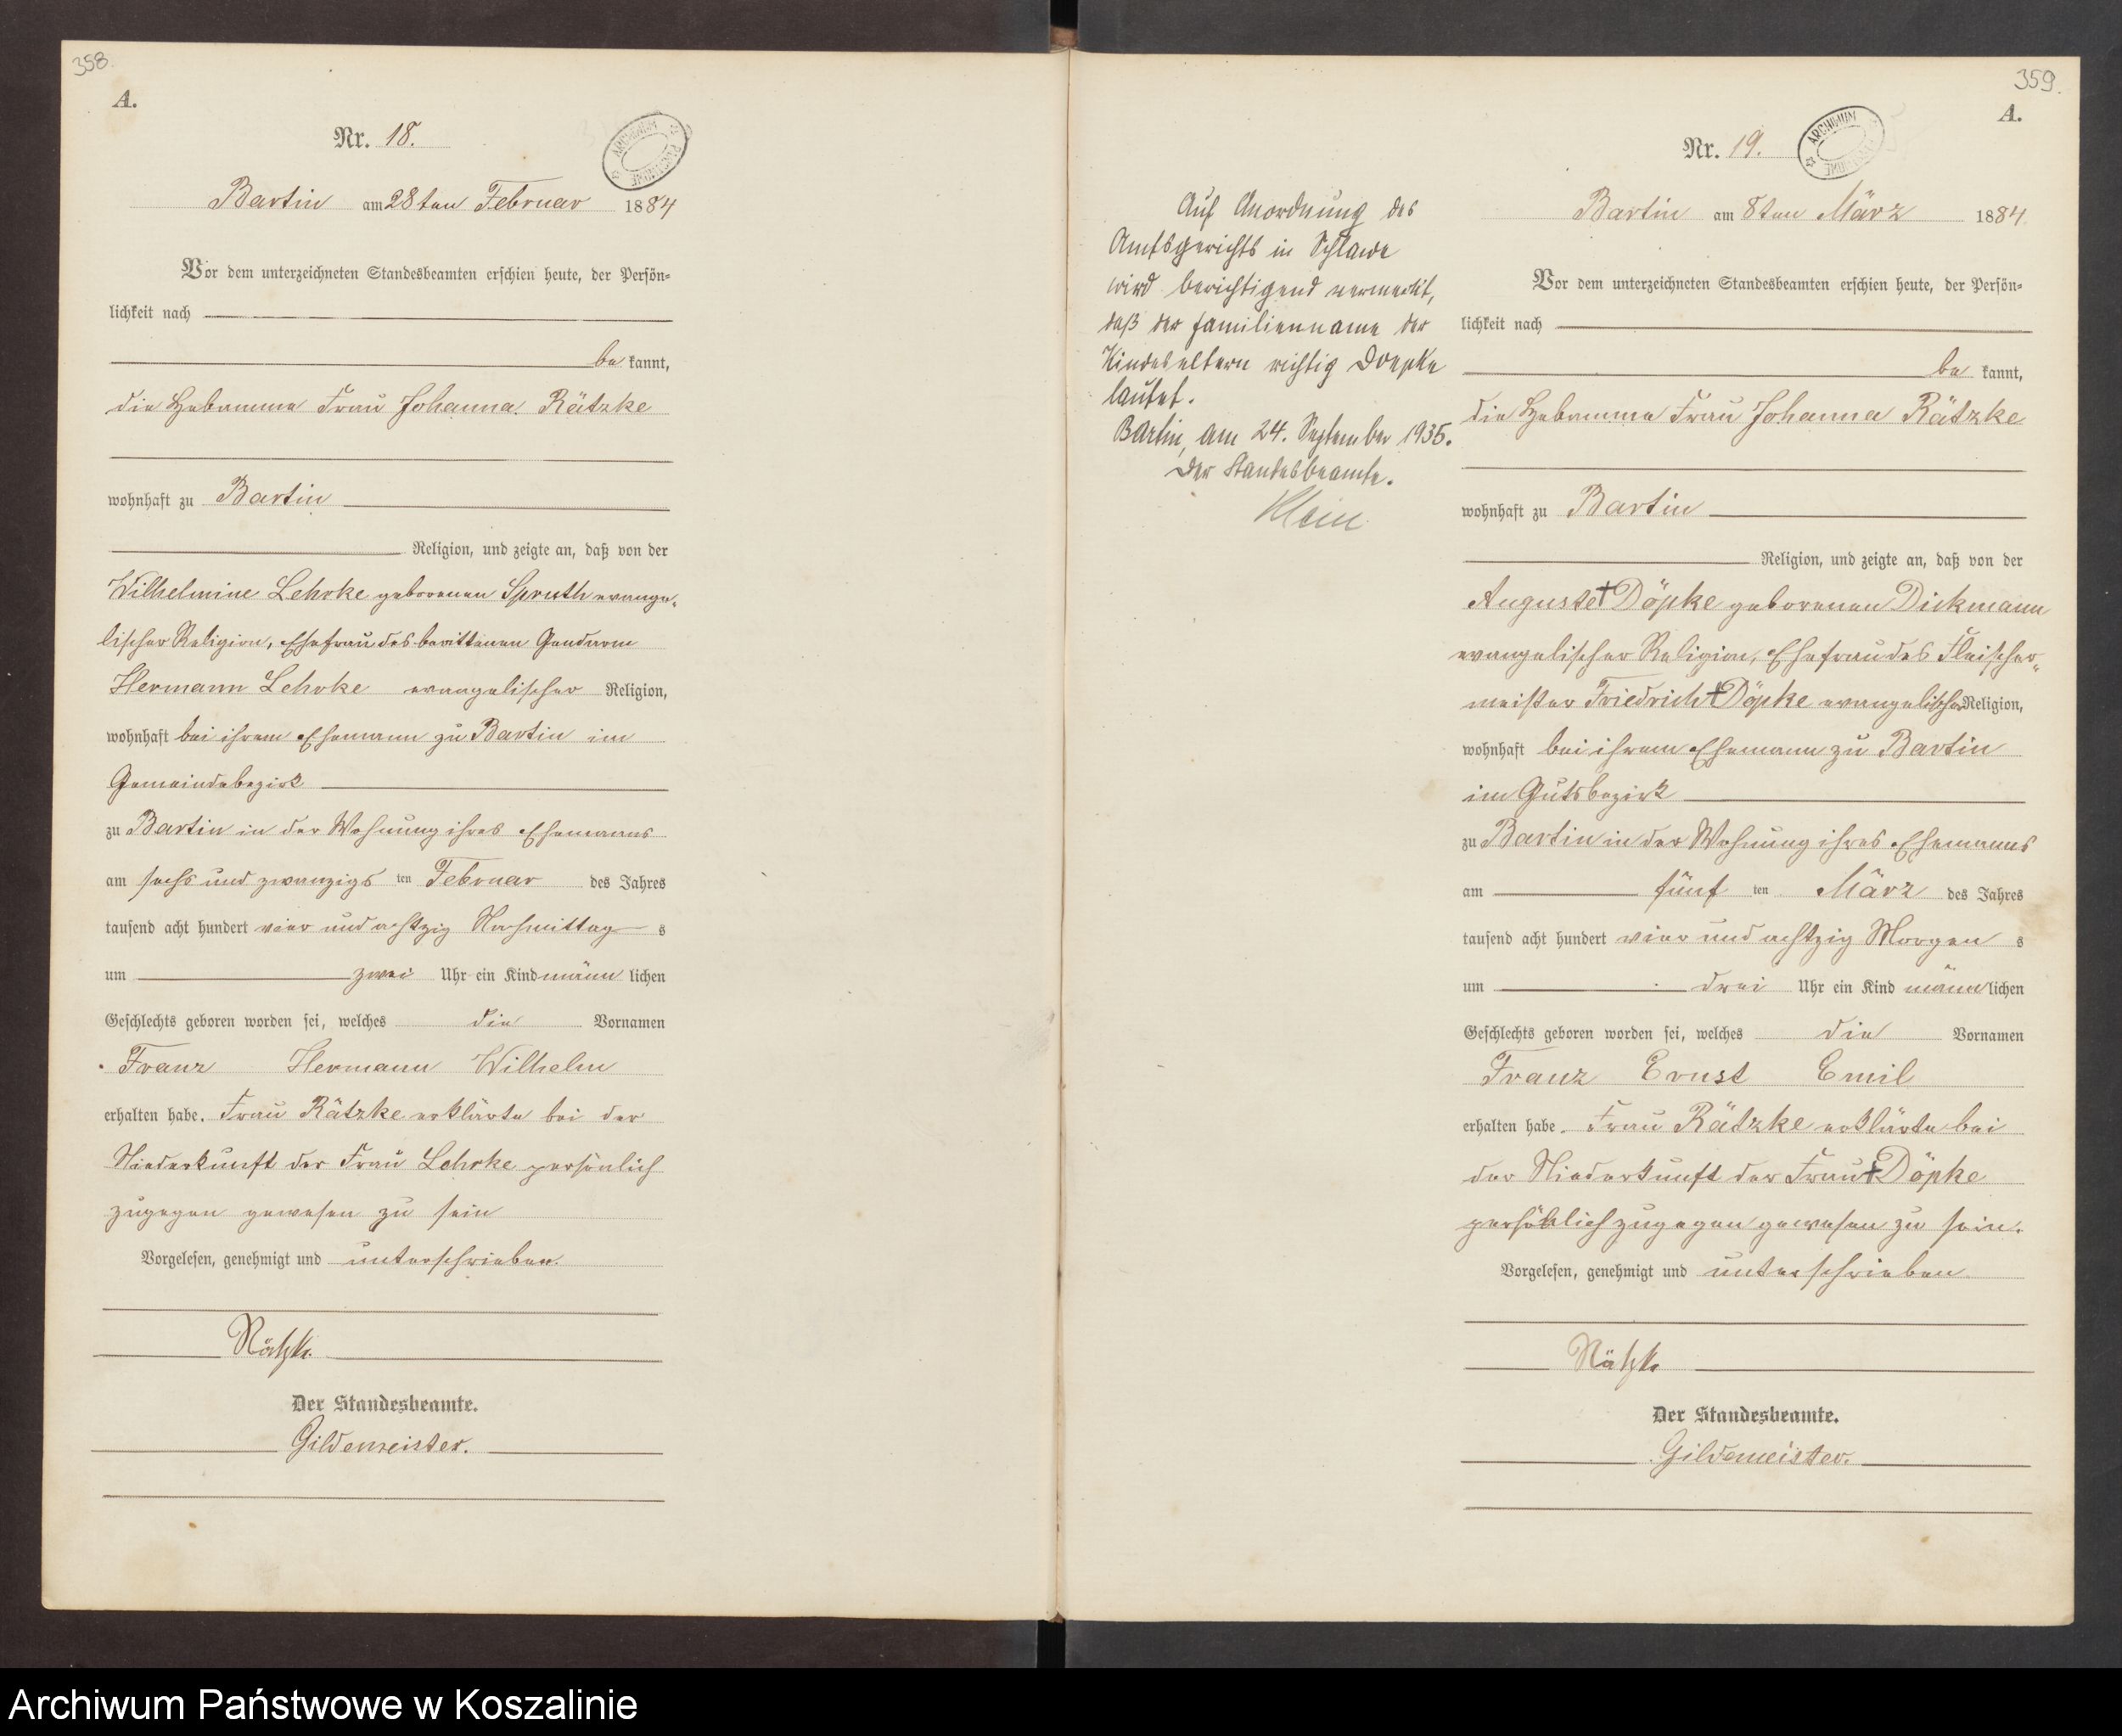 358.
A.
Nr. 18.
ARCHIWUM PAŃSTWOWE
Bartin am 28ten Februar 1884
Vor dem unterzeichneten Standesbeamten erschien heute, der Persön=
lichkeit nach
bekannt,
die Hebamme Frau Johanna Rätzke
wohnhaft zu Bartin
Religion, und zeigte an, daß von der
Wilhelmine Lehrke geborenen Spruth evange=
lischer Religion, Ehefrau des berittenen Gendarm
Hermann Lehrke evangelischer Religion,
wohnhaft bei ihrem Ehemann zu Bartin im
Gemeindebezirk
zu Bartin in der Wohnung ihres Ehemanns
am sechs und zwanzigs ten Februar des Jahres
tausend acht hundert vier und achtzig Nachmittag s
um zwei Uhr ein Kind männlichen
Geschlechts geboren worden sei, welches die Vornamen
Franz Hermann Wilhelm
erhalten habe. Frau Rätzke erklärte bei der
Niederkunft der Frau Lehrke persönlich
zugegen gewesen zu sein
Vorgelesen, genehmigt und unterschrieben.
Rätzke
Der Standesbeamte.
Gildemeister.
Auf Anordnung des
Amtsgerichts in Schlawe
wird berichtigend vermerkt,
daß der Familienname der
Kindeseltern richtig Doepke
lautet.
Bartin, am 24. September 1935.
Der Standesbeamte.
Klein
359.
A.
Nr. 19.
ARCHIWUM PAŃSTWOWE
Bartin am 8ten März 1884
Vor dem unterzeichneten Standesbeamten erschien heute, der Persön=
lichkeit nach
bekannt,
die Hebamme Frau Johanna Rätzke
wohnhaft zu Bartin
Religion, und zeigte an, daß von der
Auguste † Döpke geborenen Dickmann
evangelischer Religion, Ehefrau des Fleischer=
meister Friedrich † Döpke evangelischer Religion,
wohnhaft bei ihrem Ehemann zu Bartin
im Gutsbezirk
zu Bartin in der Wohnung ihres Ehemanns
am fünf ten März des Jahres
tausend acht hundert vier und achtzig Morgen s
um drei Uhr ein Kind männlichen
Geschlechts geboren worden sei, welches die Vornamen
Franz Ernst Emil
erhalten habe. Frau Rätzke erklärte bei
der Niederkunft der Frau † Döpke
persönlich zugegen gewesen zu sein.
Vorgelesen, genehmigt und unterschrieben
Rätzke
Der Standesbeamte.
Gildemeister.
Archiwum Państwowe w Koszalinie